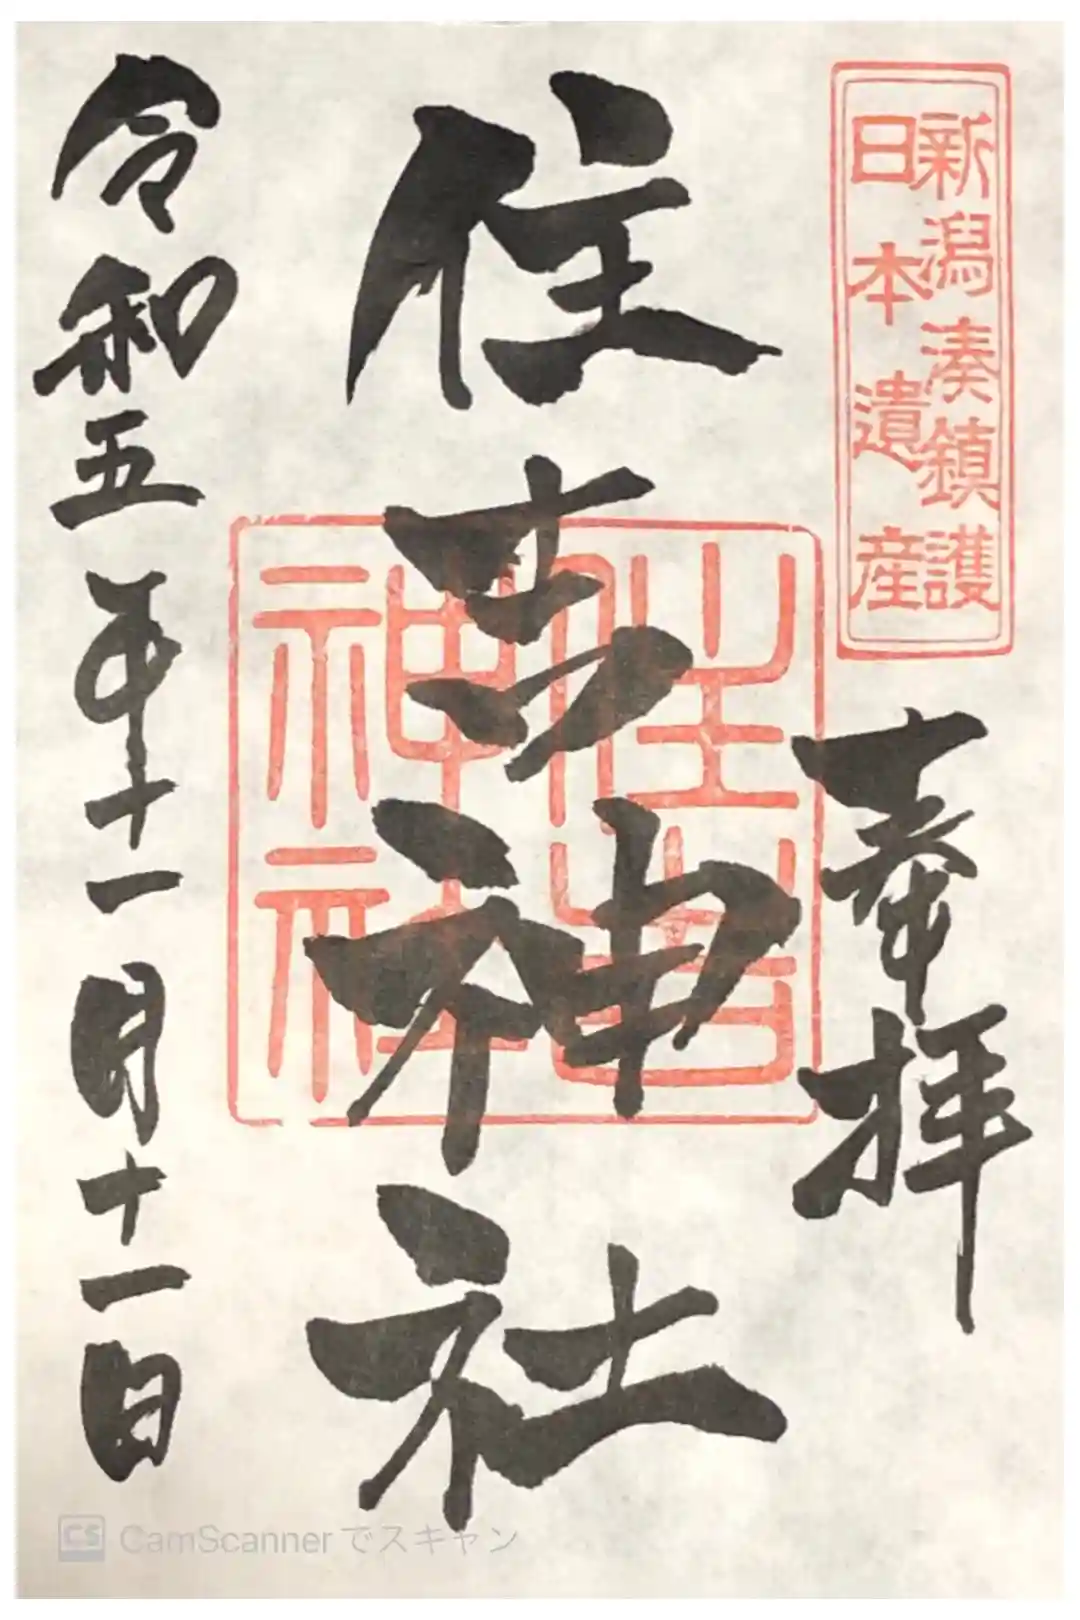 新潟湊鎮護
日本遺産
奉拝
住吉神社
住吉
神社
令和五年十一月十一日
CS CamScanner でスキャン